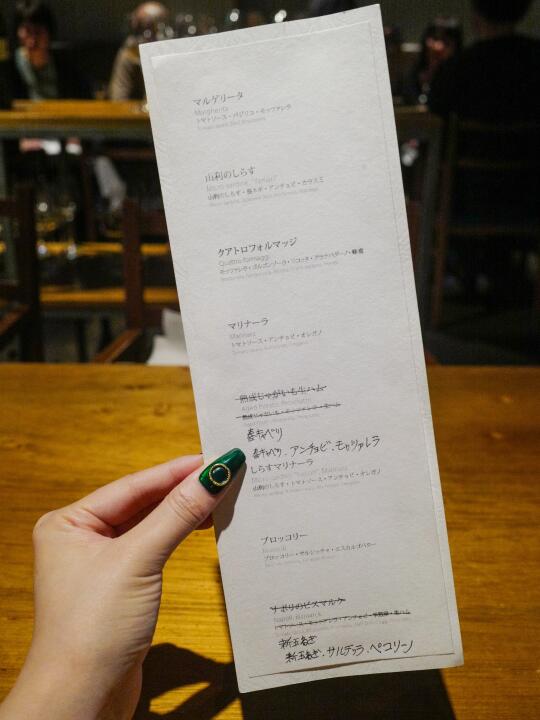 マルゲリータ
Margherita
トマトソース・バジリコ・モッツァレラ
山利のしらす
Micro sardine "Yamari"
山利のしらす・長ネギ・アンチョビ・カラスミ
クアトロフォルマッジ
Quattro formaggi
モッツァレラ・ゴルゴンゾーラ・リコッタ・グラナパダーノ・蜂蜜
マリナーラ
Marinara
トマトソース・アンチョビ・オレガノ
熟成じゃがいも生ハム
Aged Potato Prosciutto
熟成じゃがいも・モッツァレラ・生ハム
春キャベツ
春キャベツ、アンチョビ、モッツァレラ
しらすマリナーラ
Micro sardine "Yamari" Marinara
山利のしらす・トマトソース・アンチョビ・オレガノ
ブロッコリー
Broccoli
ブロッコリー・サルシッチャ・エスカルゴバター
ナポリのビスマルク
Napoli Bismarck
新玉ねぎ
新玉ねぎ、サルデッラ、ペコリーノ